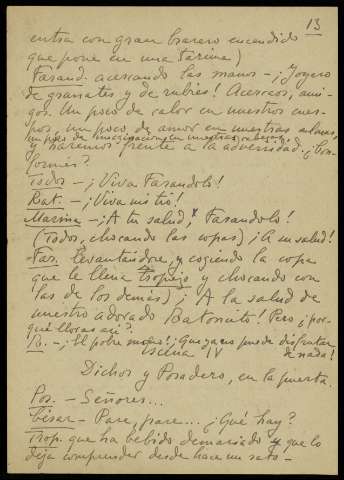 13
entra con gran brasero encendido
que pone en una tarima)
Farand. acercando las manos - ¡Joyero
de granates y de rubíes! Acercaos, ami-
gos. Un poco de calor en nuestros cuer-
pos, un poco de amor en nuestras almas,
un poco de imaginación en nuestras cabezas
y haremos frente a la adversidad. ¿Con-
formes?
Todos - ¡Viva Farandols!
Bat. - ¡Viva mi tío!
Marina - ¡A tu salud, Farandols!
(Todos, chocando las copas) ¡A su salud!
Far. levantándose, y cogiendo la copa
que le llena Tropejo y chocando con
las de los demás) ¡A la salud de
nuestro adorado Batonito! Pero ¿por-
qué lloras así?
- ¡El pobre ! ¡Que ya no puede disfrutar
de nada!
Escena IV
Dichos y Posadero, en la puerta.
Pos. - Señores...
César - Pase, pase... ¿Qué hay?
Trop. que ha bebido demasiado y que lo
deja comprender desde hace un rato -